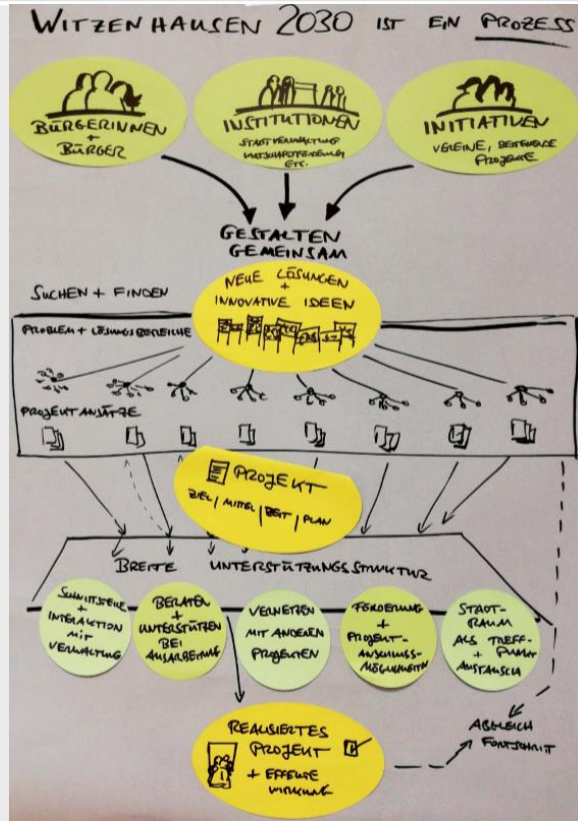 WITZENHAUSEN 2030 IST EIN PROZESS
BÜRGERINNEN
+
BÜRGER
INSTITUTIONEN
STADTVERWALTUNG
WIRTSCHAFTSFÖRDERUNG
ETC.
INITIATIVEN
VEREINE, BESTEHENDE
PROJEKTE
GESTALTEN
GEMEINSAM
NEUE LÖSUNGEN
+
INNOVATIVE IDEEN
SUCHEN + FINDEN
PROBLEM + LÖSUNGSBEREICHE
PROJEKTANSÄTZE
PROJEKT
ZIEL / MITTEL / ZEIT / PLAN
BREITE UNTERSTÜTZUNGSSTRUKTUR
SCHNITTSTELLE
+
INTERAKTION
MIT
VERWALTUNG
BERATEN
+
UNTERSTÜTZEN
BEI
AUSARBEITUNG
VERNETZEN
MIT ANDEREN
PROJEKTEN
FÖRDERUNG
+
PROJEKT-
ANSCHLUSS-
MÖGLICHKEITEN
STADT-
RAUM
ALS TREFF-
+ PUNKT
AUSTAUSCH
REALISIERTES
PROJEKT
+ EFFEKTE
WIRKUNG
ABGLEICH
FORTSCHRITT